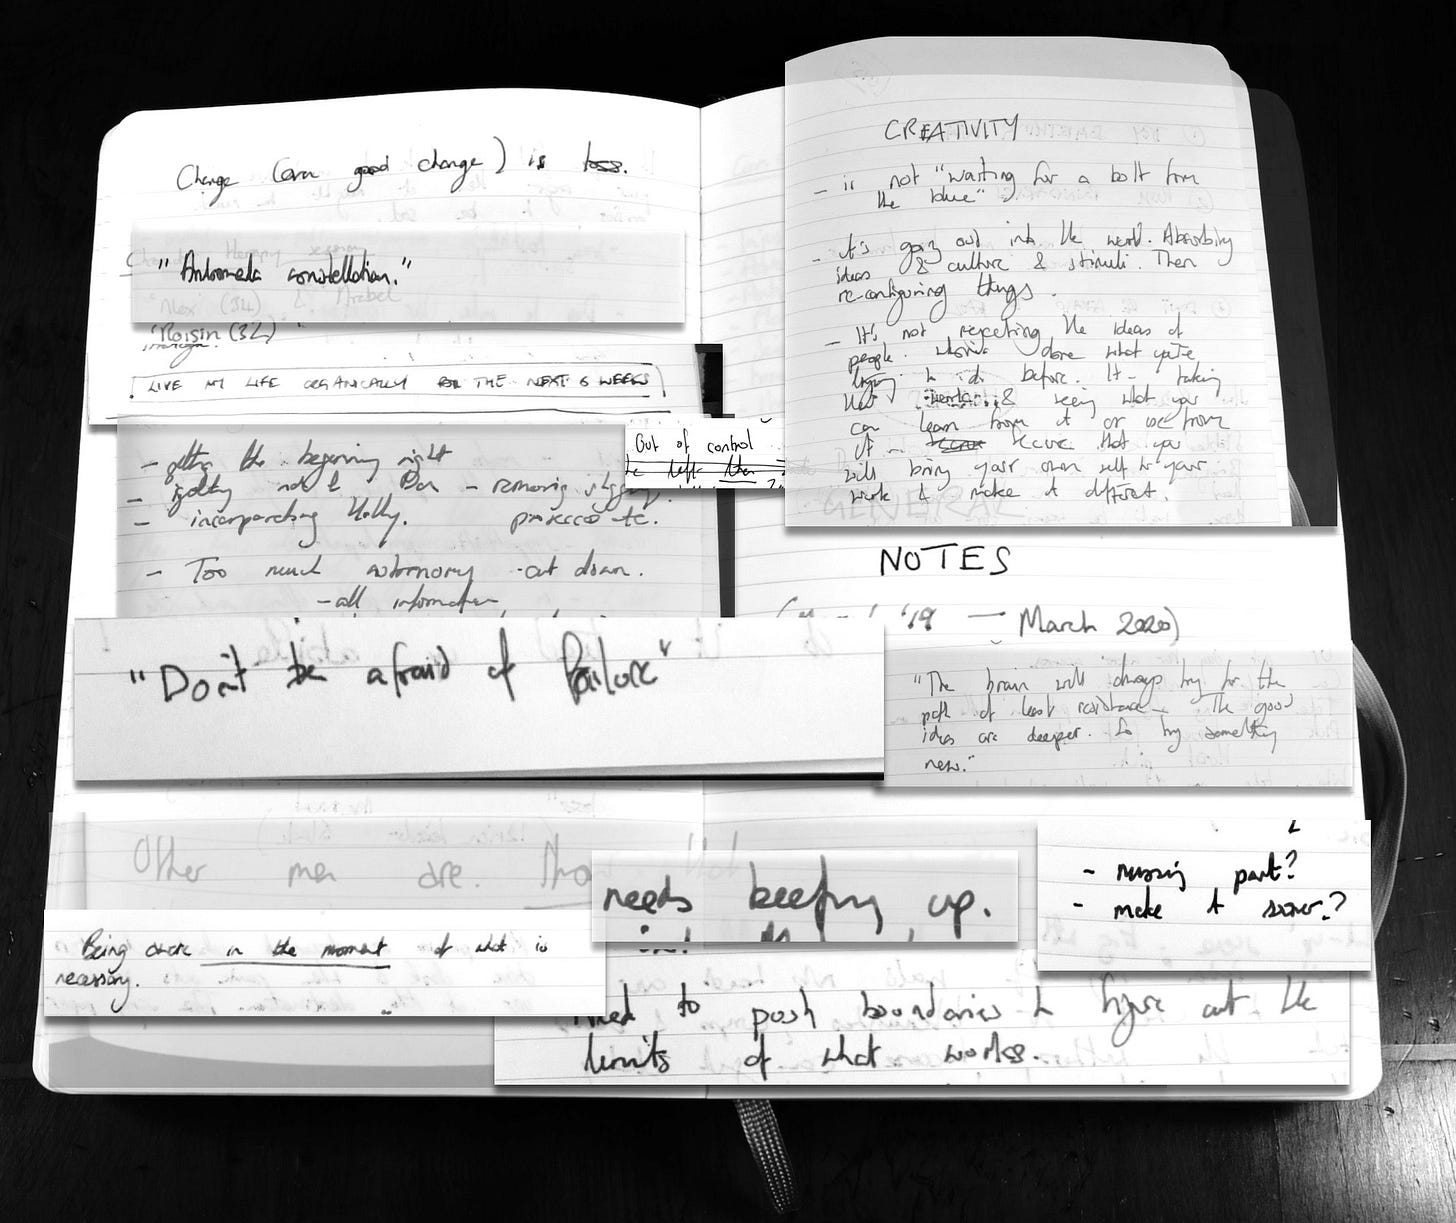 Change (even good change) is loss.
"Andromeda constellation."
"Roisin (32)
LIVE MY LIFE ORGANICALLY FOR THE NEXT 6 WEEKS
Out of control
- getting the beginning right
- removing
- incorporating Holly. prosecco etc.
- Too much autonomy - cut down.
- all information
"Don't be afraid of failure"
Other men are.
Being aware in the moment of what is
necessary.
CREATIVITY
- is not "waiting for a bolt from
the blue"
- it's going out into the world. Absorbing
ideas & culture & stimuli. Then
re-configuring things.
- It's not rejecting the ideas of
people who've done what you're
trying to do before. It's taking
their & seeing what you
can learn from it or use from
it - secure that you
will bring your own self to your
work & make it different.
GENERAL
NOTES
'19 — March 2020)
"The brain will always try for the
path of least resistance. The good
ideas are deeper. So try something
new."
needs keeping up.
- missing part?
- make it sooner?
need to push boundaries to figure out the
limits of what works.